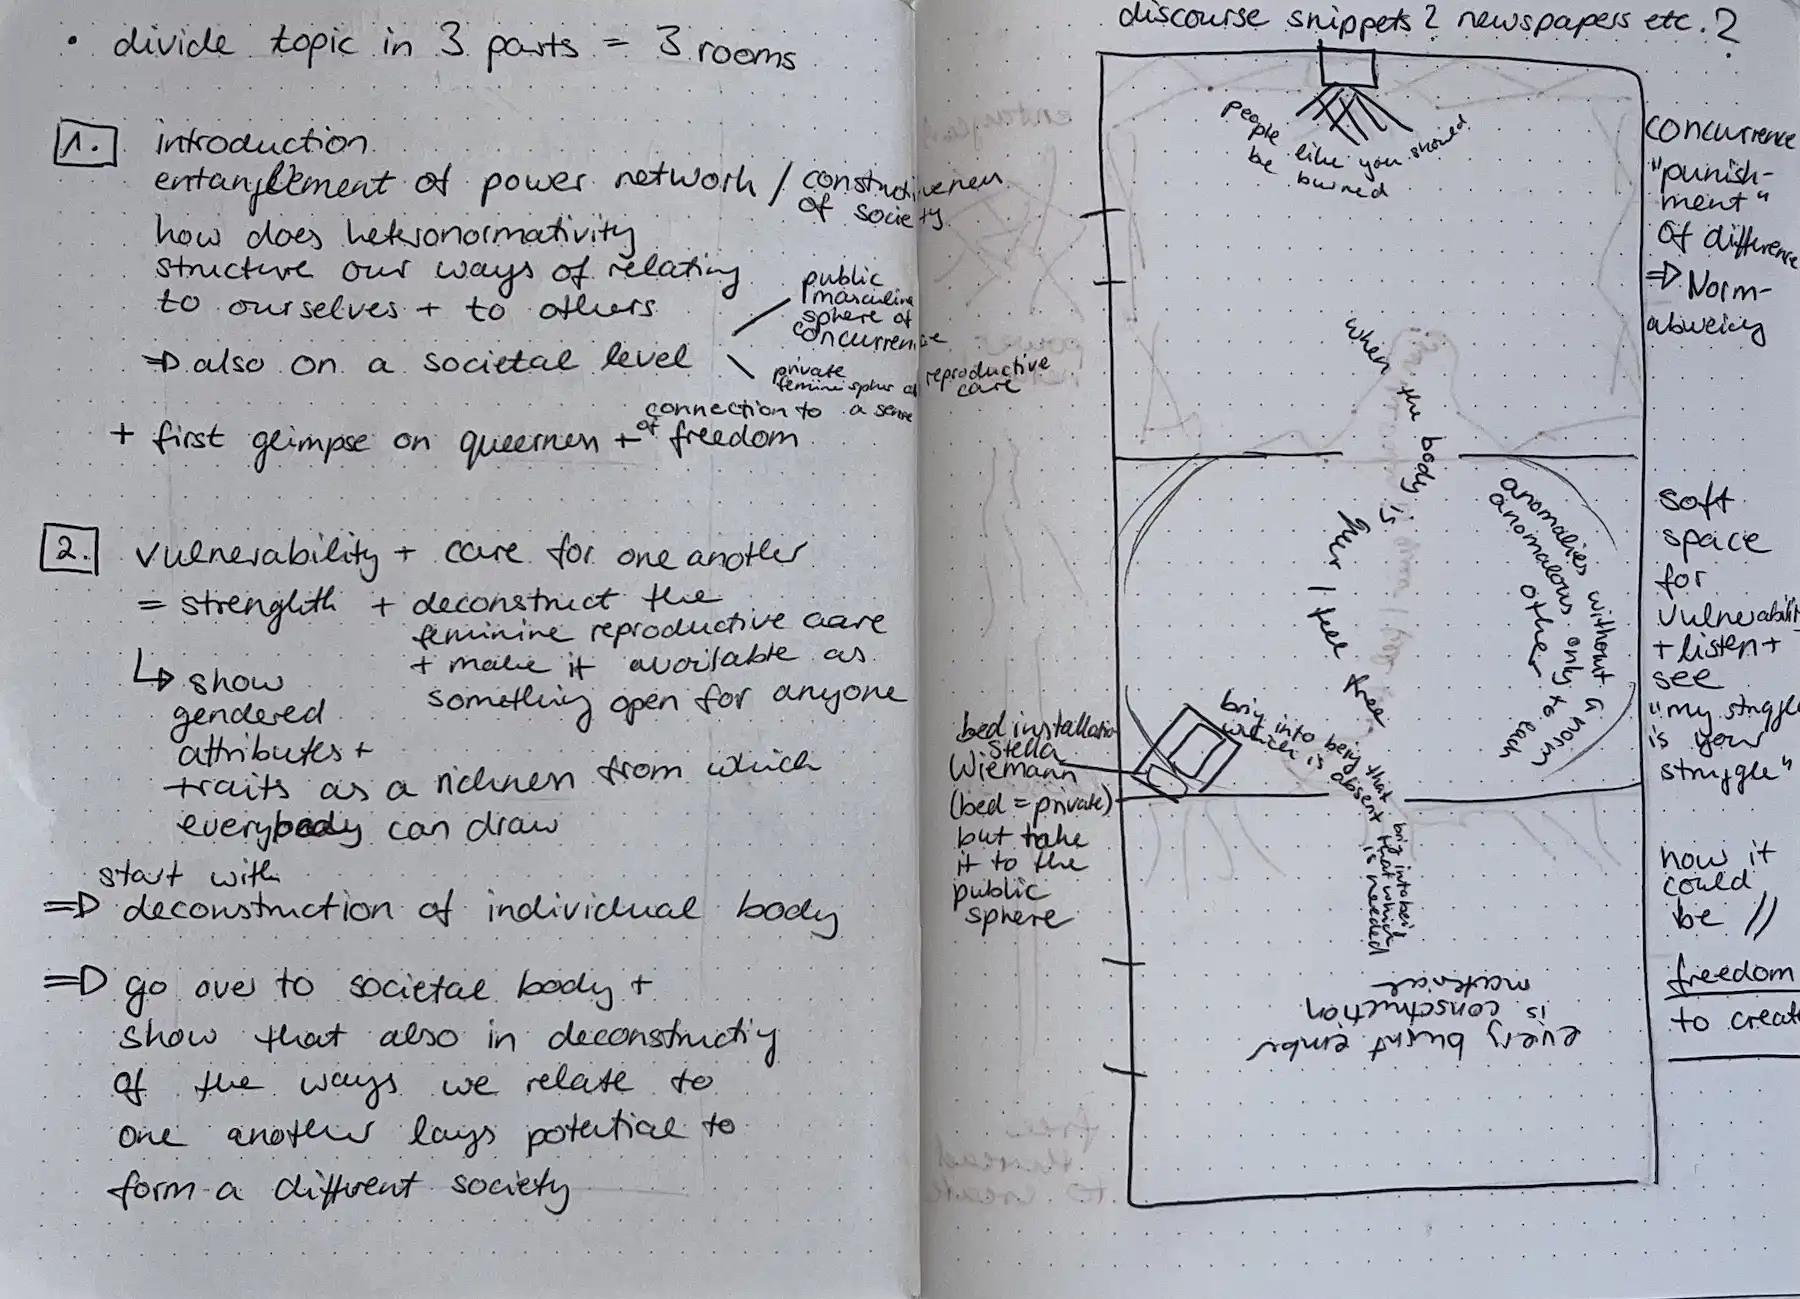 • divide topic in 3 parts = 3 rooms
1. introduction
entanglement of power network / constructiveness
of society
how does heteronormativity
structure our ways of relating
to ourselves + to others
⇒ also on a societal level
public
masculine
sphere of
concurrence
private
feminine sphere of reproductive
care
+ first glimpse on queerness + freedom
connection to a sense
of
2. vulnerability + care for one another
= strenghth + deconstruct the
feminine reproductive care
+ make it available as
something open for anyone
↳ show
gendered
attributes +
traits as a richness from which
everybody can draw
start with
⇒ deconstruction of individual body
⇒ go over to societal body +
show that also in deconstructig
of the ways we relate to
one another lays potential to
form a different society
discourse snippets? newspapers etc.?
people like you should
be burned
concurrence
"punish-
ment"
of difference
⇒ Norm-
when the body is
queer I feel free
anomalies without a norm
anomalous only to each
other
soft
space
for
vulnerabili
+ listen +
see
"my struggle
is your
struggle"
bed installation
Stella
Wiemann
(bed = private)
but take
it to the
public
sphere
brig into being that
which is absent
brig into beig
that which
is needed
how it
could
be //
freedom
to create
every burnt ember
is construction
material